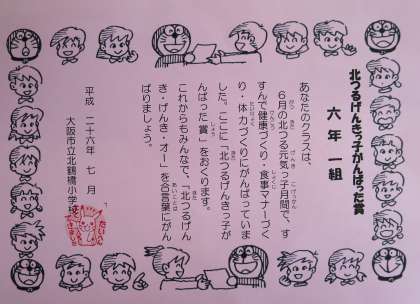 北つるげんきっ子がんばった賞
六年 一組
あなたのクラスは、
6月の北つる元気っ子月間で、す
すんで健康づくり・食事マナーづく
り・体力づくりにがんばっていま
した。ここに「北つるげんきっ子が
んばった賞」をおくります。
これからもみんなで、「北つるげん
き・げんき・オー」を合言葉にがん
ばりましょう。
平成 二十六年 七月
大阪市立北鶴橋小学校